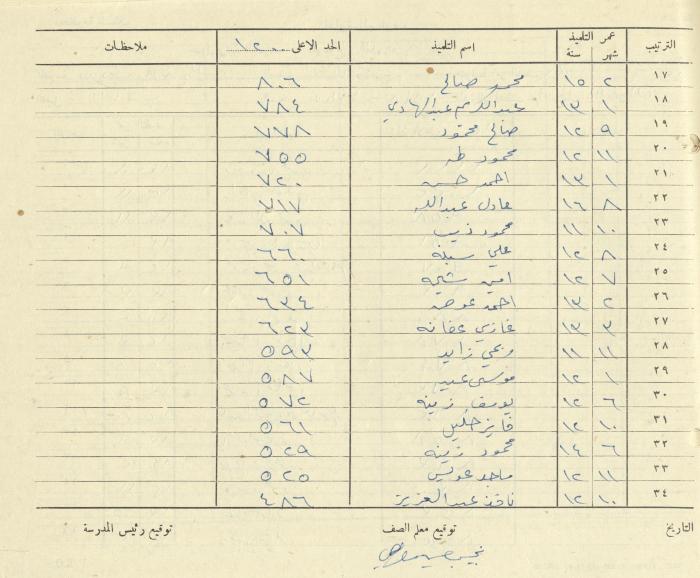 الترتيب عمر التلميذ شهر سنة اسم التلميذ الحد الاعلى ١٢٠٠ ملاحظات
١٧ ٢ ١٥ محمود صالح ٨٠٦
١٨ ١ ١٣ عبدالكريم عبدالهادي ٧٨٤
١٩ ٩ ١٢ صالح محمود ٧٧٨
٢٠ ١١ ١٢ محمود طه ٧٥٥
٢١ ١ ١٣ احمد حسن ٧٢٠
٢٢ ٨ ١٦ عادل عبدالله ٧١٧
٢٣ ١٠ ١١ محمود ذيب ٧٠٧
٢٤ ٨ ١٢ علي ٦٦٠
٢٥ ٧ ١٢ امين ٦٥١
٢٦ ٢ ١٣ احمد عوض ٦٣٤
٢٧ ٣ ١٣ غازي عفانه ٦٢٣
٢٨ ١١ ١١ ربحي زايد ٥٩٣
٢٩ ١ ١٢ موسى عبيد ٥٨٧
٣٠ ٦ ١٢ يوسف زينه ٥٧٢
٣١ ١٠ ١٢ فايز خليل ٥٦١
٣٢ ٦ ١٤ محمود زينه ٥٢٩
٣٣ ١١ ١٢ ماجد عويس ٥٢٥
٣٤ ١٠ ١٢ نافذ عبدالعزيز ٤٨٦
التاريخ توقيع معلم الصف توقيع رئيس المدرسة